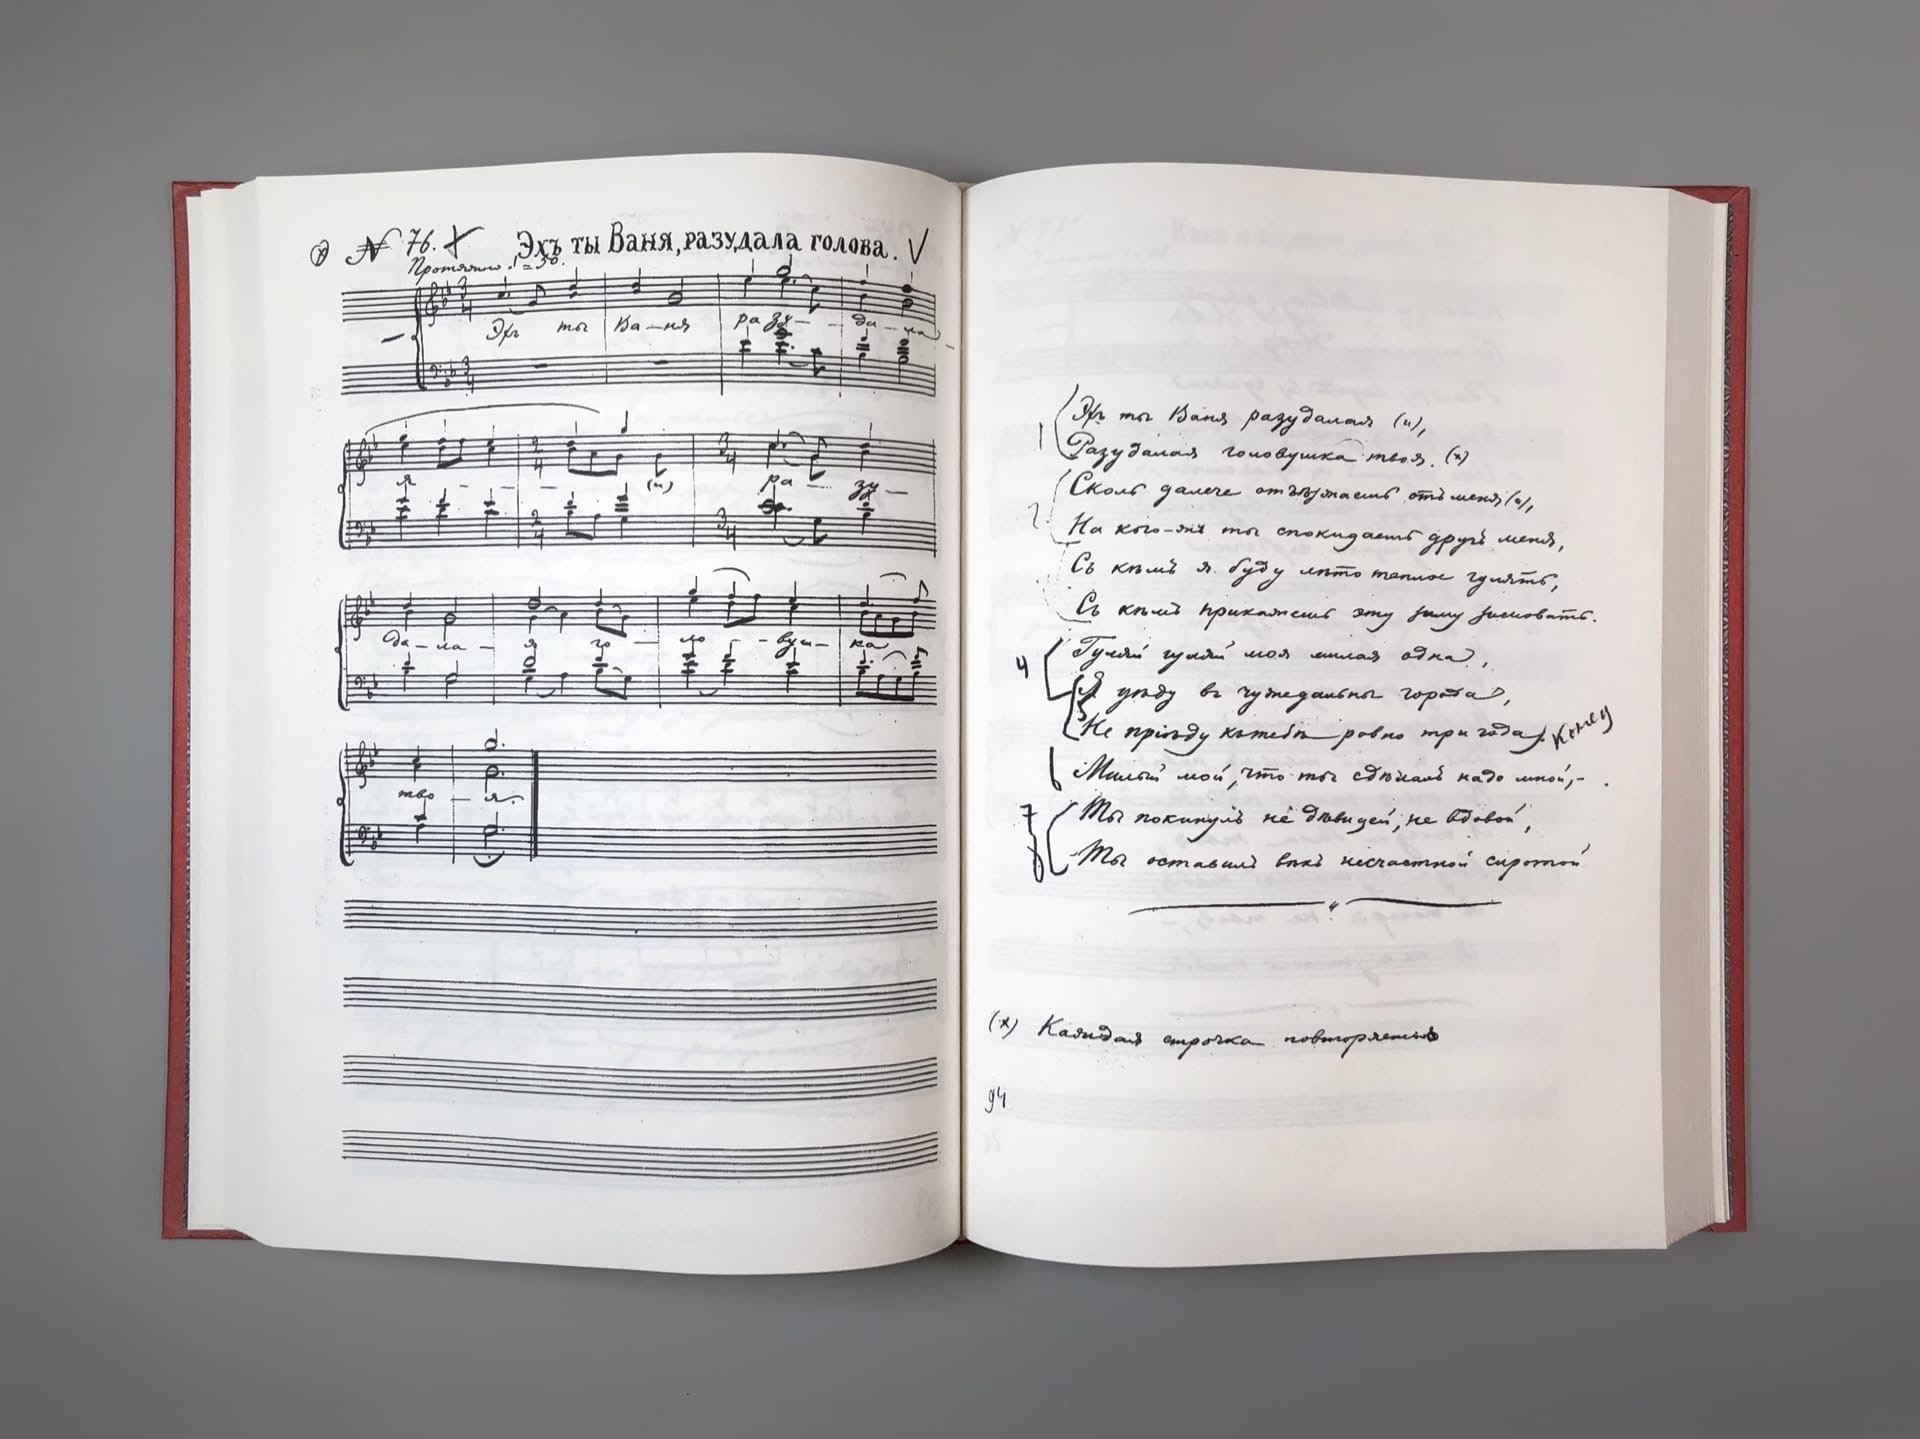 № 76. Эхъ ты Ваня, разудала голова. V
Протяжно. = 50.
Эхъ ты Ва-ня ра зу- - да-ла
я - - - (и) ра - зу -
да-ла - я го - ло - -вуш- ка
тво - я.
1 Эхъ ты Ваня разудалая (и),
Разудалая головушка твоя. (х)
2 Сколь далече отъѣзжаешь отъ меня (и),
На кого-жъ ты спокидаешь другъ меня,
Съ кѣмъ я буду лѣто теплое гулять,
Съ кѣмъ прикажешь эту зиму зимовать.
4 Гуляй гуляй моя милая одна,
5 Я уѣду въ чужедальны города,
Не пріѣду къ тебѣ ровно три года. Конец
6 Милый мой, что ты сдѣлалъ надо мной,-
7 Ты покинулъ не дѣвицей, не вдовой,
8 Ты оставилъ вѣкъ несчастной сиротой
(х) Каждая строчка повторяется
94